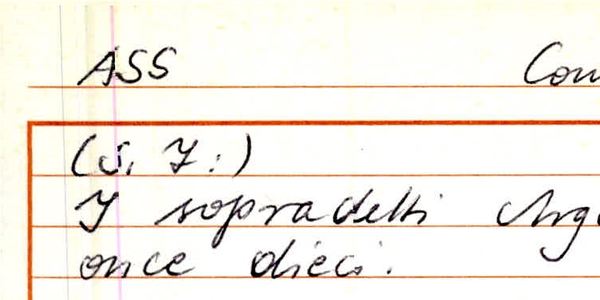 ASS Com
(s. I:)
I sopradetti Arge
once dieci.